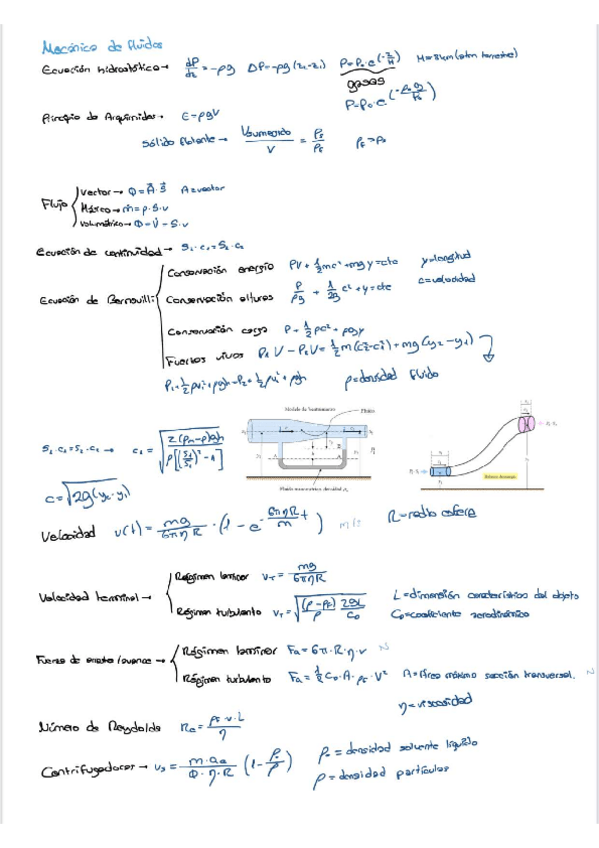 Mecánica de fluidos
Ecuación hidrostática → dP/dz = -ρg   ΔP = -ρg(z₂-z₁)   P = P₀·e^(-z/H)   H = 8km (atm terrestre)
gases
P = P₀·e^(-ρ₀g/P₀)
Principio de Arquímides → E = ρgV
Sólido flotante → Vsumergido/V = ρs/ρF   ρF > ρs
Flujo
Vector → Φ = A⃗·S⃗   A = vector
Másico → ṁ = ρ·S·v
Volumétrico → Φ = V̇ = S·v
Ecuación de continuidad → S₁·c₁ = S₂·c₂
Ecuación de Bernouilli
Conservación energía   PV + 1/2mc² + mgy = cte   y = longitud
Conservación alturas   P/ρg + 1/2g c² + y = cte   c = velocidad
Conservación carga   P + 1/2ρc² + ρgy
Fuerzas vivas   P₁V - P₂V = 1/2m(c₂²-c₁²) + mg(y₂-y₁)
P₁ + 1/2ρv₁² + ρgh = P₂ + 1/2ρv² + ρgh   ρ = densidad fluido
S₁·c₁ = S₂·c₂ → c₁ = √(2(ρm-ρ)gh / ρ[(S₁/S₂)²-1])
Fluido
c = √(2g(y₂-y₁))
Velocidad   v(t) = mg/6πηR · (1 - e^(-6πηR/m t))   m/s   R = radio esfera
Velocidad terminal →
Régimen laminar   vT = mg/6πηR
Régimen turbulento   vT = √((ρ-ρF)/ρ · 2gL/CD)
L = dimensión característica del objeto
CD = coeficiente aerodinámico
Fuerza de arrastre/avance →
Régimen laminar   Fa = 6π·R·η·v   N
Régimen turbulento   Fa = 1/2 CD·A·ρF·V²   A = Área máxima sección transversal.   N
η = viscosidad
Número de Reynolds   Re = ρF·v·L/η
Centrifugadoras → vs = m·ac/Φ·η·R (1 - ρ₀/ρ)
ρ₀ = densidad solvente líquido
ρ = densidad partículas